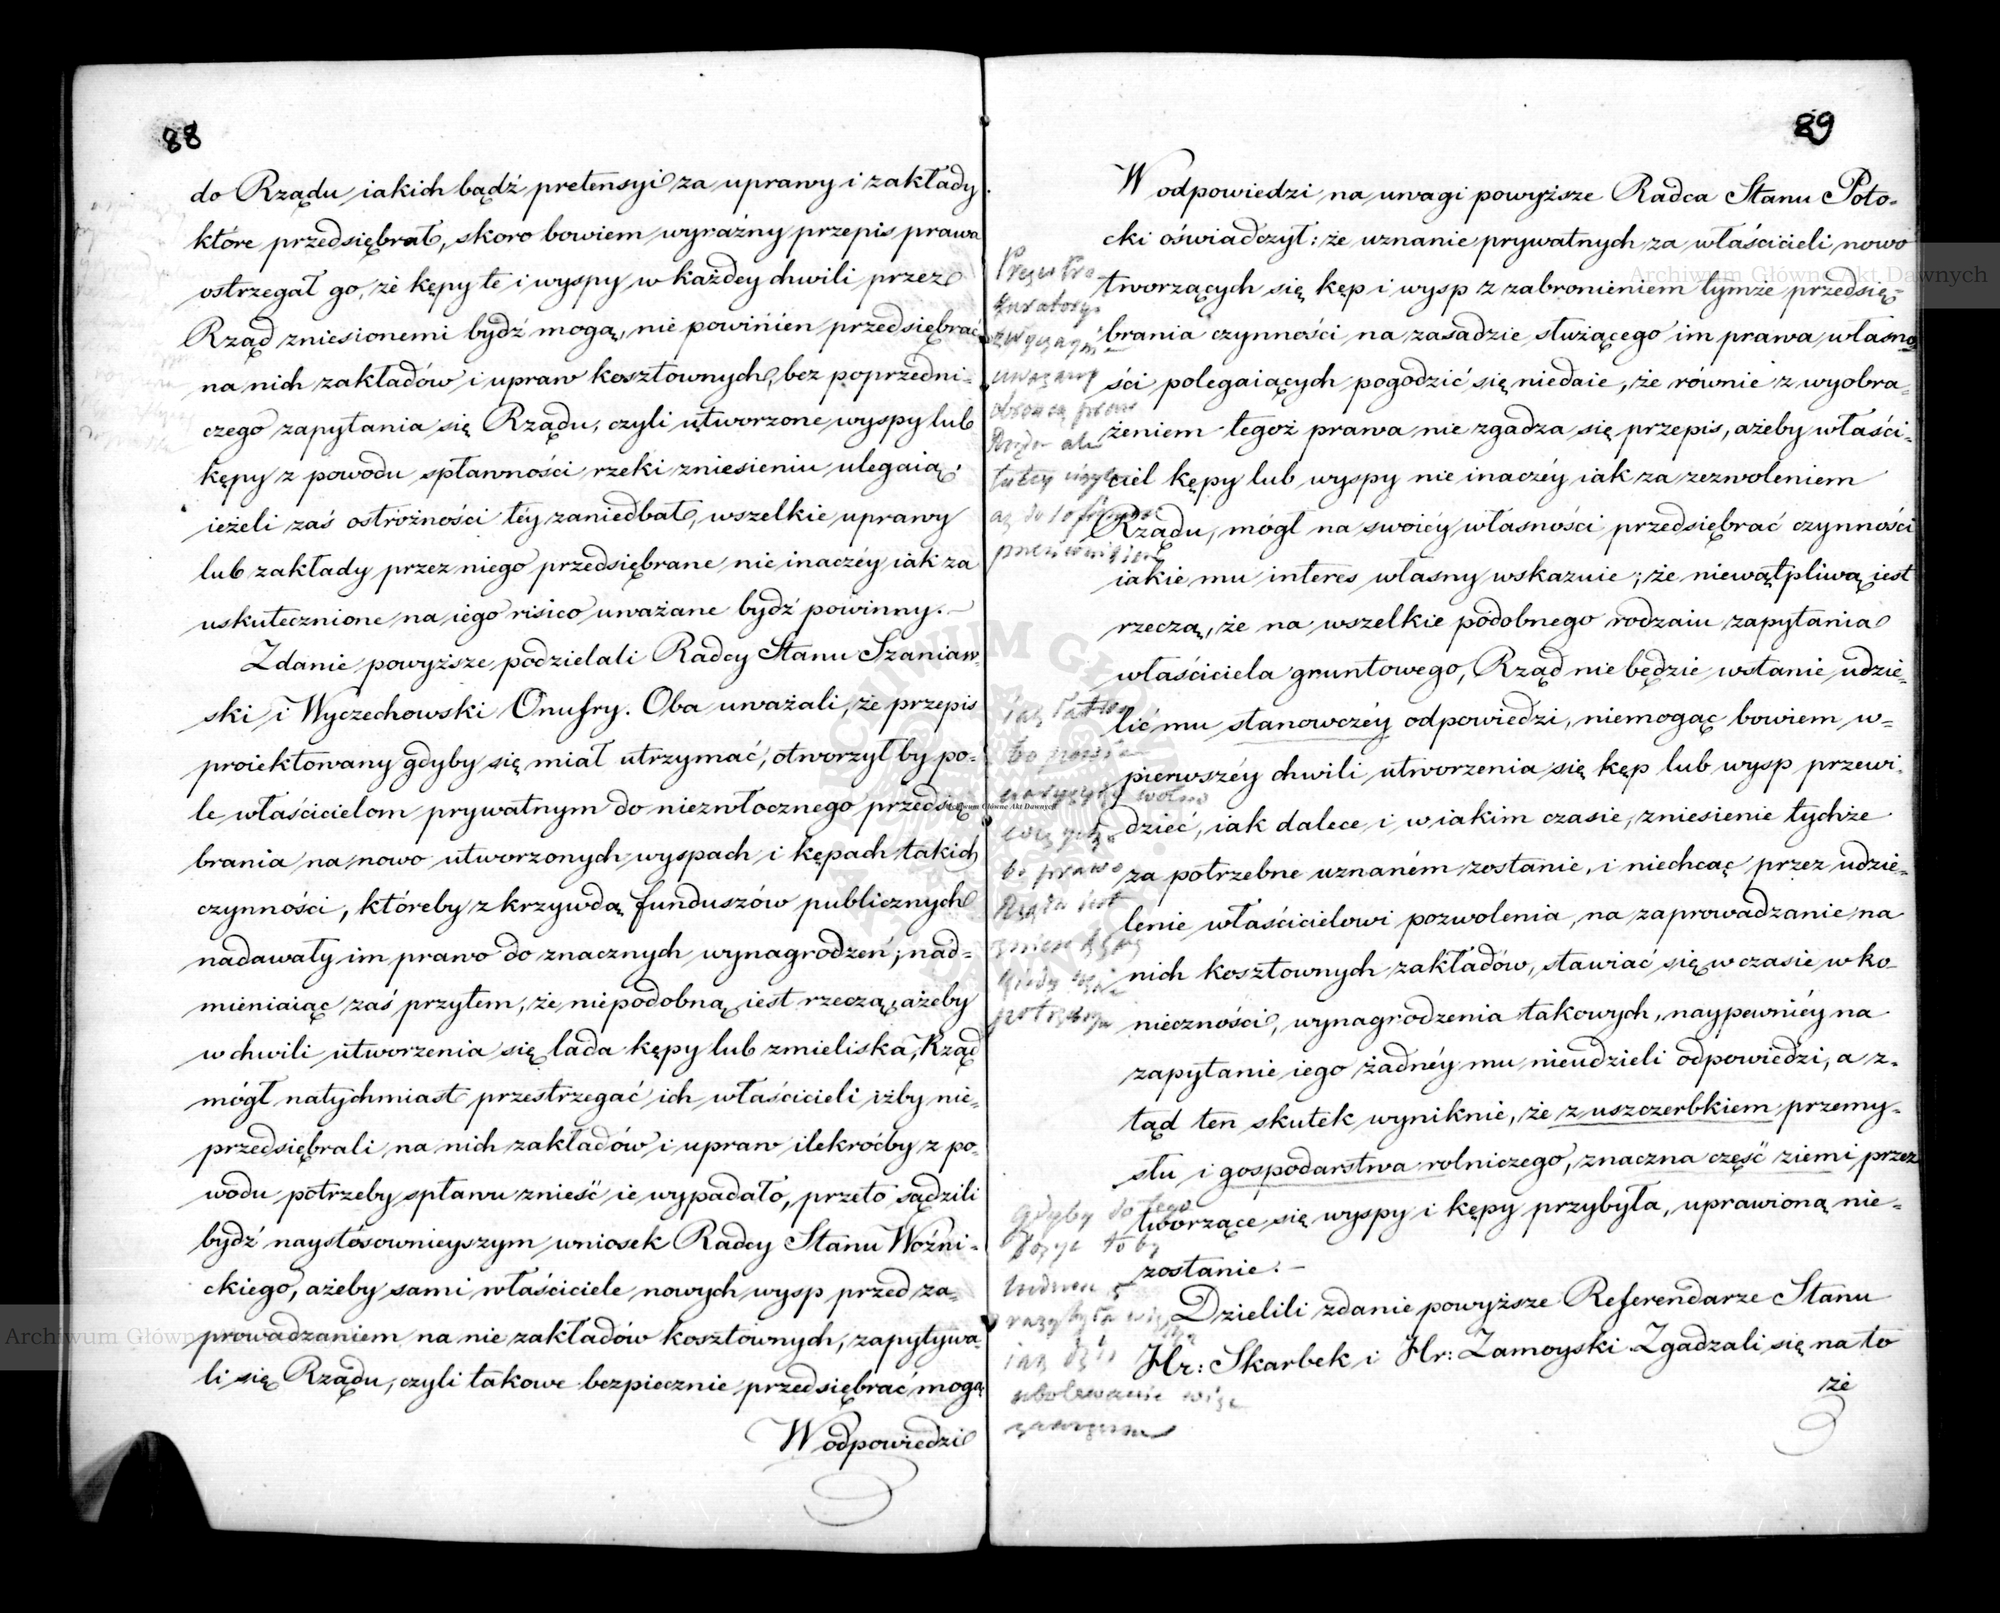 88
do Rządu iakich bądź pretensyi za uprawy i zakłady
które przedsiębrał, skoro bowiem wyraźny przepis prawa
ostrzegał go, że kępy te i wyspy w każdey chwili przez
Rząd zniesionemi bydź mogą, nie powinien przedsiębrać
na nich zakładów i upraw kosztownych, bez poprzedni-
czego zapytania się Rządu, czyli utworzone wyspy lub
kępy z powodu spławności rzeki zniesieniu ulegaią;
ieżeli zaś ostróżności téy zaniedbał, wszelkie uprawy
lub zakłady przez niego przedsiębrane nie inaczéy iak za
uskutecznione na iego risico uważane bydź powinny. —
Zdanie powyższe podzielali Radcy Stanu Szaniaw-
ski i Wyczechowski Onufry. Oba uważali, że przepis
proiektowany gdyby się miał utrzymać, otworzył by po-
le właścicielom prywatnym do niezwłocznego przedsię
brania na nowo utworzonych wyspach i kępach takich
czynności, któreby z krzywdą funduszów publicznych
nadawały im prawo do znacznych wynagrodzeń; nad-
mieniaiąc zaś przytem, że niepodobną iest rzeczą, ażeby
w chwili utworzenia się lada kępy lub zmieliska, Rząd
mógł natychmiast przestrzegać ich właścicieli iżby nie-
przedsiębrali na nich zakładów i upraw ilekroćby z po-
wodu potrzeby spławu znieść ie wypadało, przeto sądzili
bydź naystósownieyszym wniosek Radcy Stanu Woźni-
ckiego, ażeby sami właściciele nowych wysp przed za-
prowadzaniem na nie zakładów kosztownych, zapytywa-
li się Rządu, czyli takowe bezpiecznie przedsiębrać mogą
W odpowiedzi
89
W odpowiedzi na uwagi powyższe Radca Stanu Poto-
cki oświadczył: że uznanie prywatnych za właścicieli nowo
tworzących się kęp i wysp z zabronieniem tymże przedsię-
brania czynności na zasadzie służącego im prawa własno
ści polegaiących pogodzić się niedaie, że równie z wyobra-
żeniem tegoż prawa nie zgadza się przepis, ażeby właści-
ciel kępy lub wyspy nie inaczéy iak za zezwoleniem
Rządu, mógł na swoiéy własności przedsiębrać czynności
iakie mu interes własny wskazuie; że niewątpliwą iest
rzeczą, że na wszelkie podobnego rodzaiu zapytania
właściciela gruntowego, Rząd nie będzie wstanie udzie-
lić mu stanowczéy odpowiedzi, niemogąc bowiem w-
pierwszéy chwili utworzenia się kęp lub wysp przewi-
dzieć, iak dalece i w iakim czasie, zniesienie tychże
za potrzebne uznaném zostanie, i niechcąc przez udzie-
lenie właścicielowi pozwolenia, na zaprowadzanie na
nich kosztownych zakładów, stawiać się w czasie w ko-
nieczności, wynagrodzenia takowych, naypewniéy na
zapytanie iego żadnéy mu nieudzieli odpowiedzi, a z-
tąd ten skutek wyniknie, że z uszczerbkiem przemy-
słu i gospodarstwa rolniczego, znaczna część ziemi przez
tworzące się wyspy i kępy przybyła, uprawioną nie-
zostanie. —
Dzielili zdanie powyższe Referendarze Stanu
Hr: Skarbek i Hr: Zamoyski. Zgadzali się na to
że
Gdyby do tego
Archiwum Główne Akt Dawnych